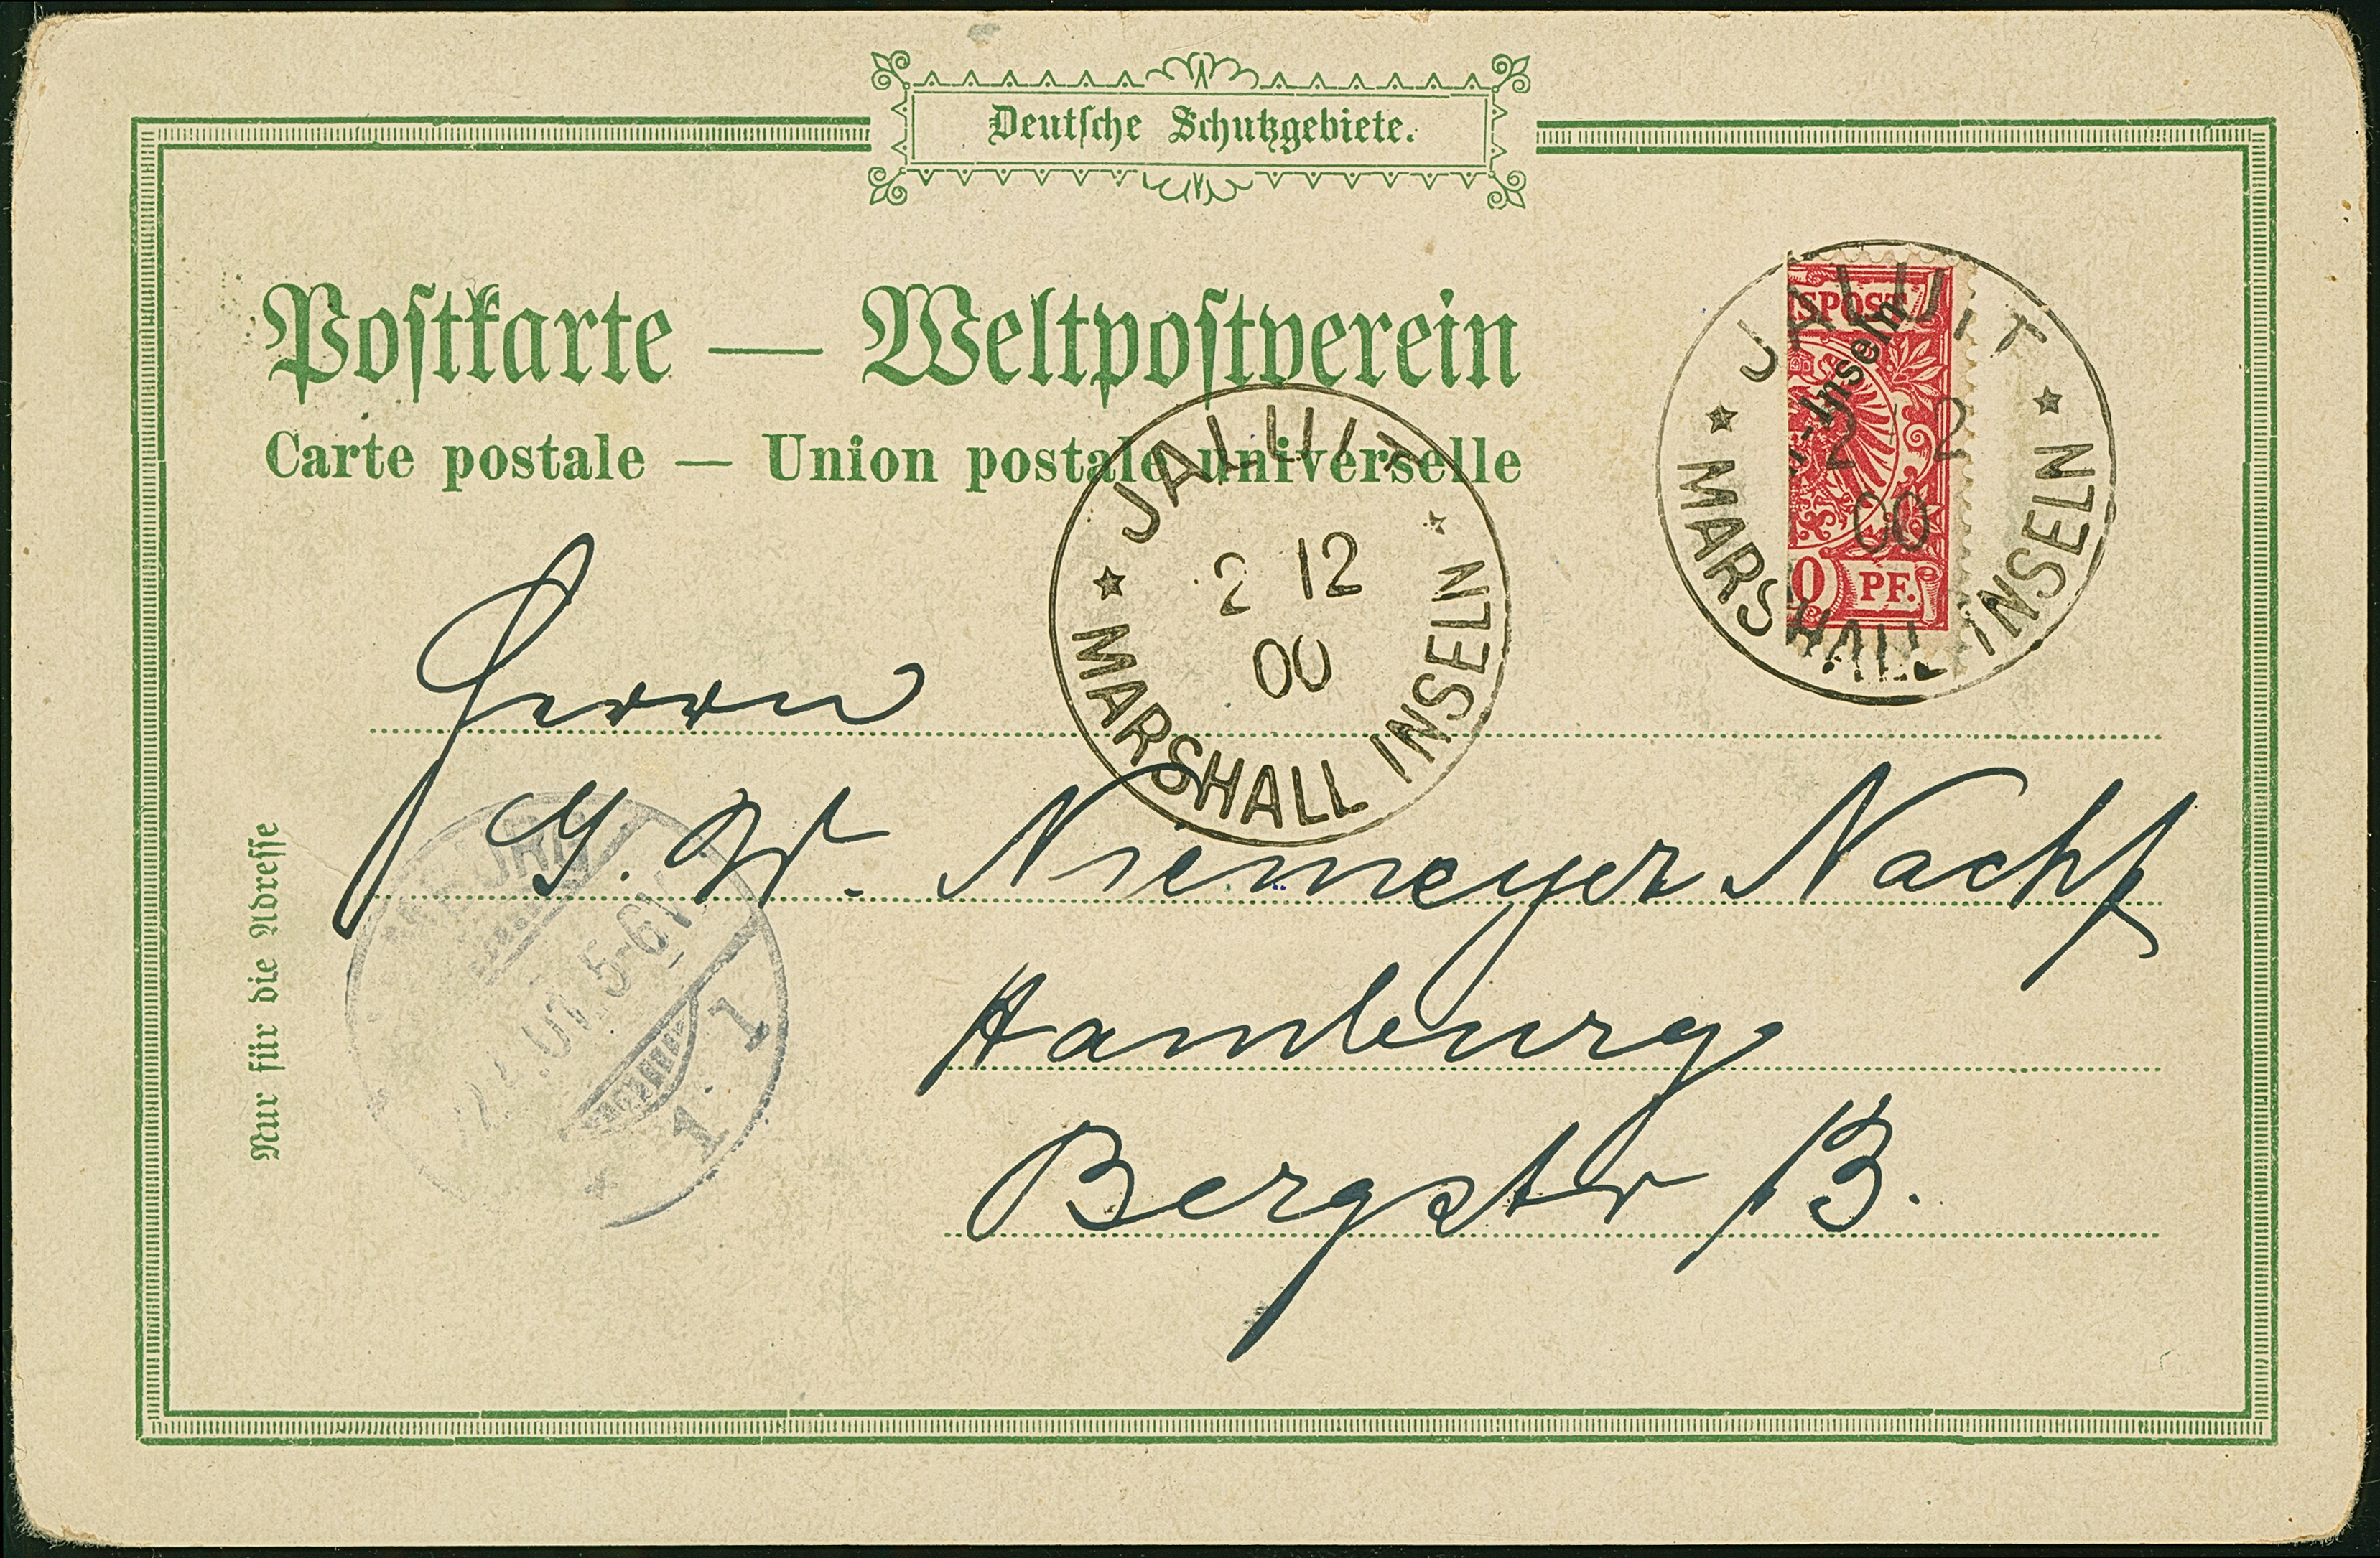 Deutſche Schutzgebiete.
Poſtkarte — Weltpoſtverein
Carte postale — Union postale universelle
SPOST
-Inseln
0 PF.
JALUIT
2 12
00
MARSHALL INSELN
JALUIT
2 12
00
MARSHALL INSELN
Herrn
G. W. Niemeyer Nachf
Hamburg
Bergstr 13.
Nur für die Adreſſe
01. 5-6N
1.
1